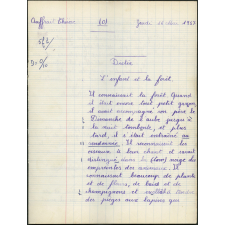 (0)
Jeudi
Dictée
L'enfant et la forêt
Il connaissait la forêt. Quand
il était encore tout petit garçon,
il avait accompagné son père le
Dimanche de l'aube jusqu'à
la nuit tombante, et plus
tard, il s'était entraîné au
randonnée. Il reconnaissait les
oiseaux à leur chant et savait
distinguer dans la neige les
empreintes des animaux. Il
connaissait beaucoup de plantes
et de fleurs, de baies et de
champignons et
des pièges aux lapins que